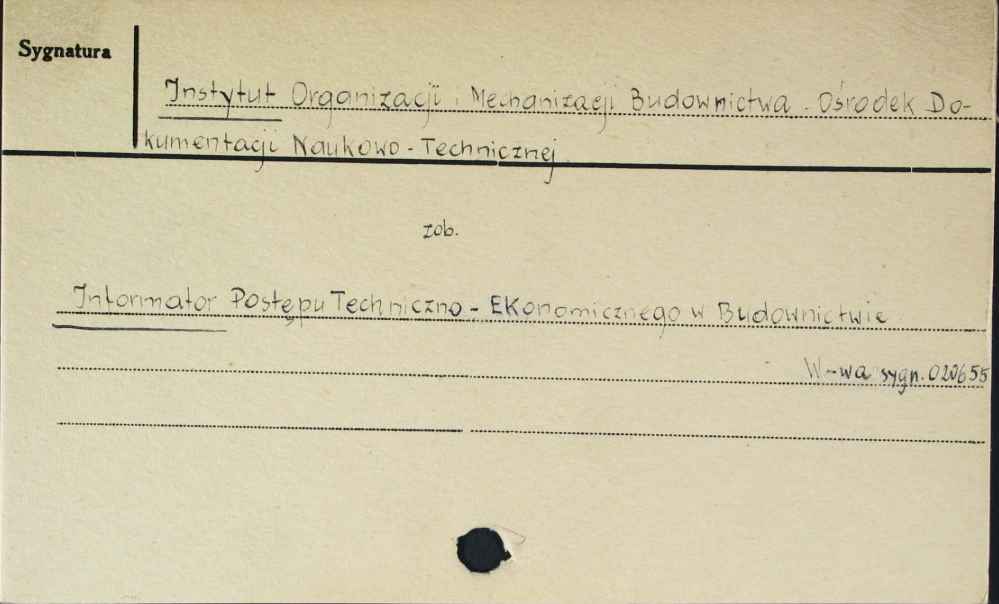 Sygnatura
Instytut Organizacji i Mechanizacji Budownictwa. Ośrodek Do-
kumentacji Naukowo-Technicznej
zob.
Informator Postępu Techniczno-Ekonomicznego w Budownictwie
W-wa sygn. 020655